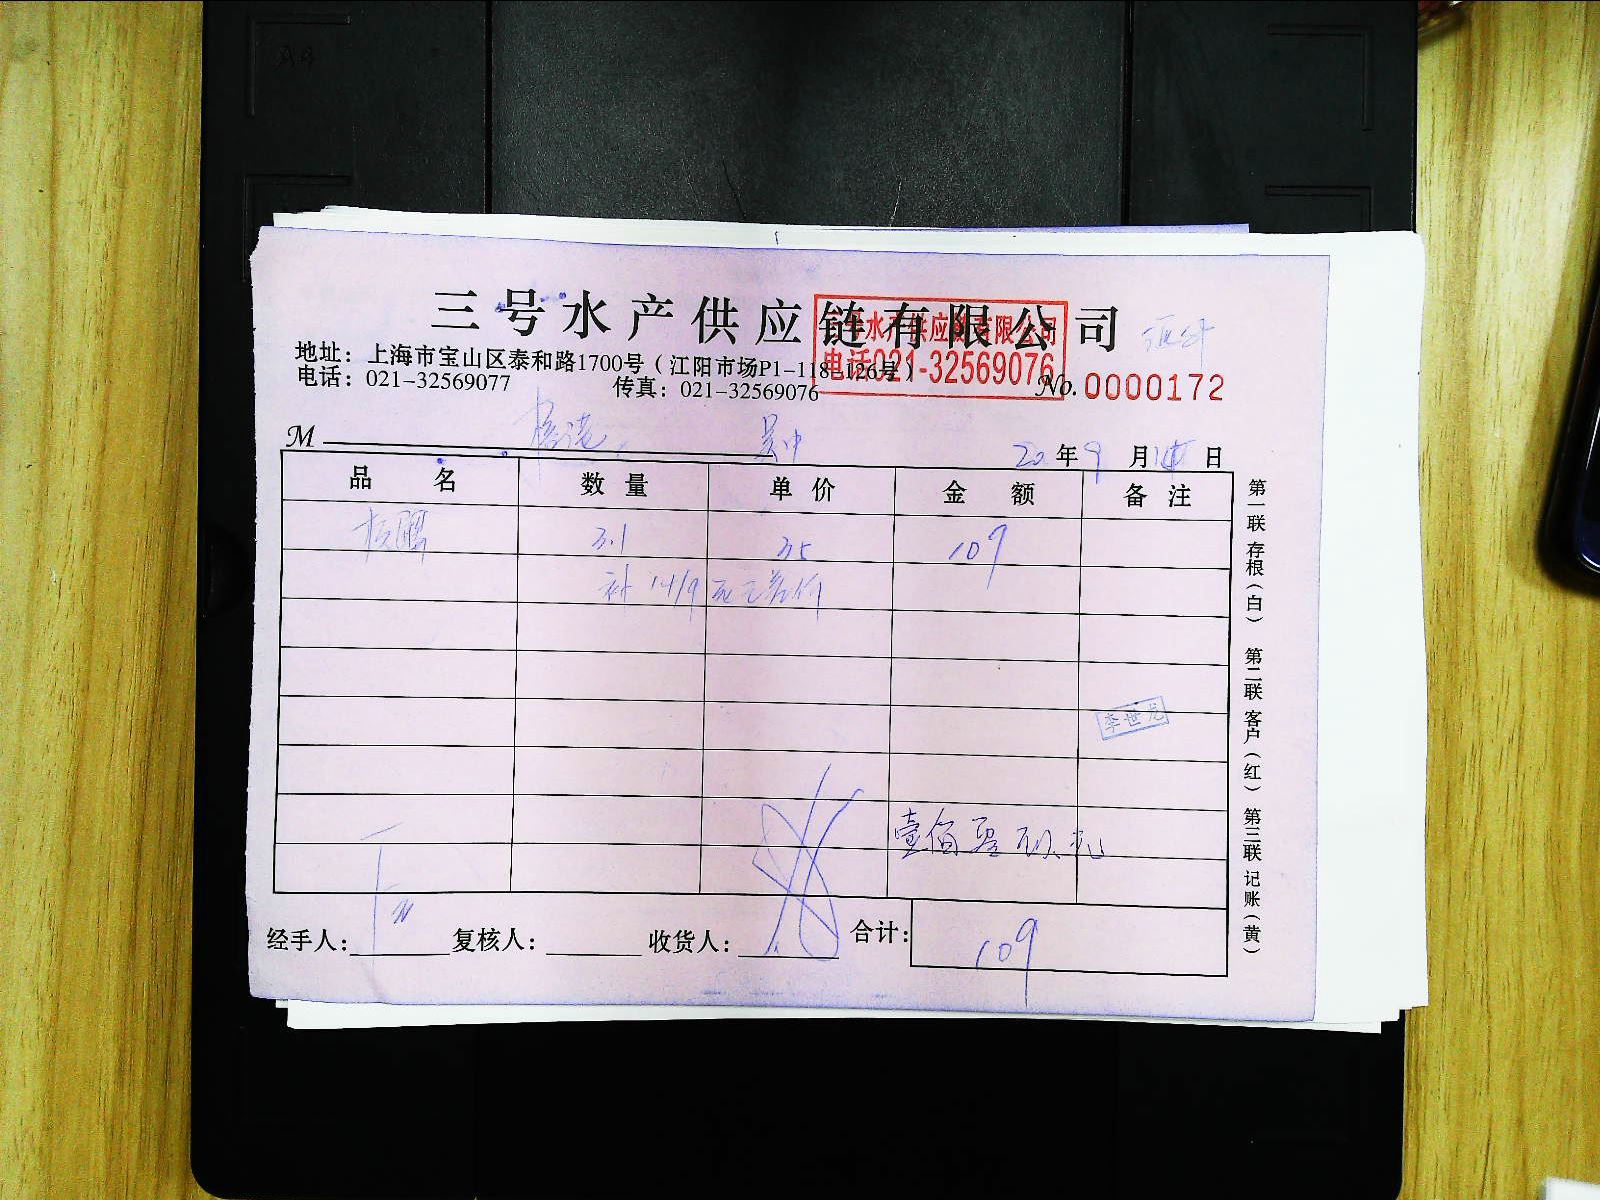 三号水产供应链有限公司
三号水产供应链有限公司
电话021-32569076
地址：上海市宝山区泰和路1700号（江阳市场P1-118-126号）
电话：021-32569077 传真：021-32569076
No.0000172
M 吴中 20年9月14日
品名 数量 单价 金额 备注
3.1 35 109
补 14/9 差价
李世龙
壹佰 玖元
经手人： 复核人： 收货人： 合计：109
第一联 存根（白） 第二联 客户（红） 第三联 记账（黄）